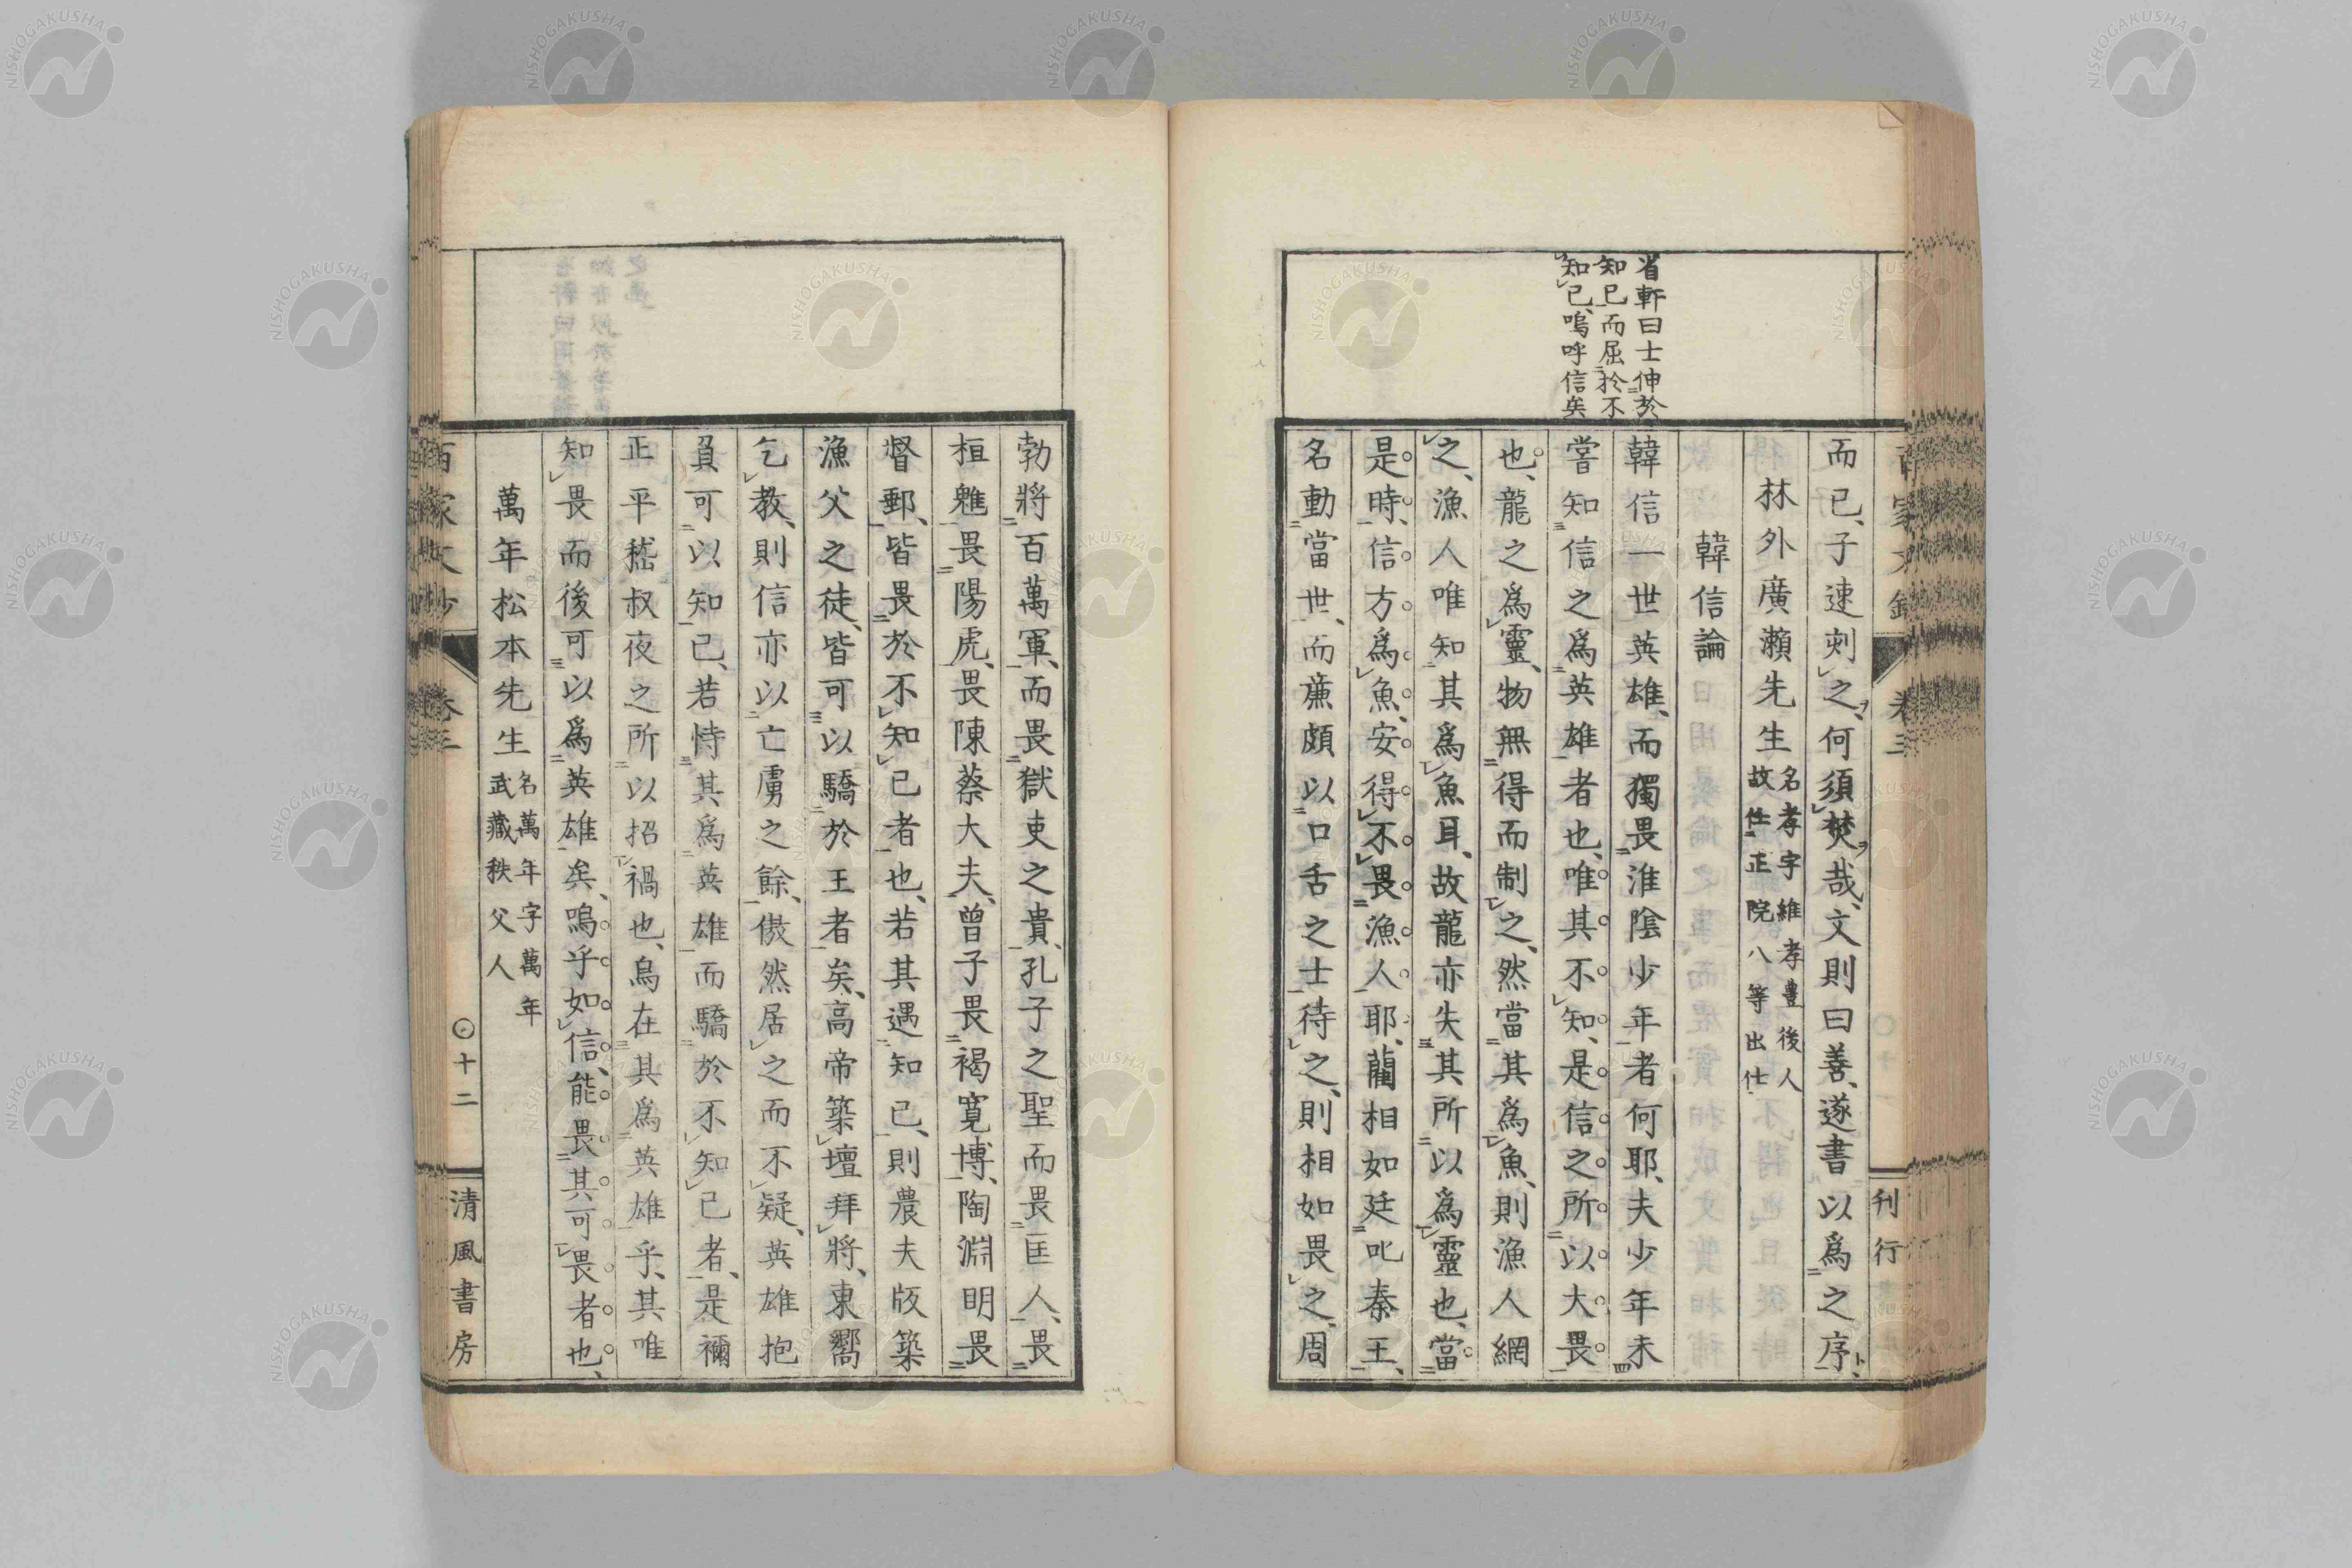 省軒曰士伸於
知已而屈於不
知已、嗚呼信矣
而已、子速刺之、何須焚哉、文則曰善、遂書以爲之序、
林外廣瀬先生 名孝字維孝豊後人
故任正院八等出仕
韓信論
韓信一世英雄、而獨畏淮陰少年者何耶、夫少年未
嘗知信之爲英雄者也、唯其不知、是信之所以大畏
也、龍之爲靈、物無得而制之、然當其爲魚、則漁人網
之、漁人唯知其爲魚耳、故龍亦失其所以爲靈也、當
是時、信方爲魚、安得不畏漁人耶、藺相如廷叱秦王、
名動當世、而廉頗以口舌之士待之、則相如畏之、周
刊行
勃將百萬軍、而畏獄吏之貴、孔子之聖而畏匡人、畏
桓魋畏陽虎、畏陳蔡大夫、曾子畏褐寛博、陶淵明畏
督郵、皆畏於不知已者也、若其遇知已、則農夫版築
漁父之徒、皆可以驕於王者矣、高帝築壇拜將、東嚮
乞教、則信亦以亡虜之餘、傲然居之而不疑、英雄抱
負可以知已、若恃其爲英雄而驕於不知已者、是禰
正平嵇叔夜之所以招禍也、烏在其爲英雄乎、其唯
知畏而後可以爲英雄矣、嗚乎如信、能畏其可畏者也、
萬年松本先生 名萬年字萬年
武藏秩父人
卷三
十二
清風書房
NISHOGAKUSHA